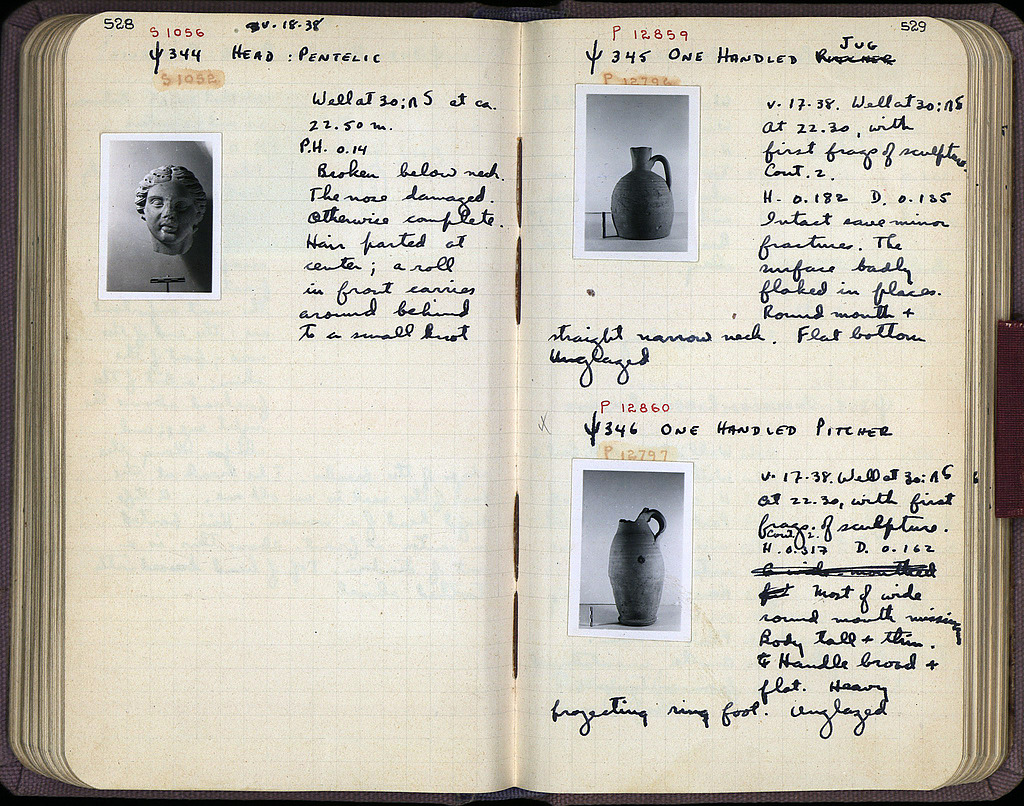 528
S 1056
v. 18-38
ψ 344 HEAD : PENTELIC
S 1052
Well at 30; ΛS at ca.
22.50 m.
P.H. 0.14
Broken below neck.
The nose damaged.
Otherwise complete.
Hair parted at
center; a roll
in front carries
around behind
to a small knot
529
P 12859
JUG
ψ 345 ONE HANDLED PITCHER
P 12796
v. 17-38. Well at 30; ΛS
At 22.30, with
first frags of sculpture.
Cont. 2.
H. 0.182 D. 0.135
Intact save minor
fractures. The
surface badly
flaked in places.
Round mouth +
straight narrow neck. Flat bottom
Unglazed
P 12860
X
ψ 346 ONE HANDLED PITCHER
P 12797
v. 17-38. Well at 30; ΛS
at 22.30, with first
frags. of sculpture.
Cont. 2.
H. 0.317 D. 0.162
A wide mouthed
Most of wide
round mouth missing
Body tall + thin.
Handle broad +
flat. Heavy
projecting ring foot. Unglazed